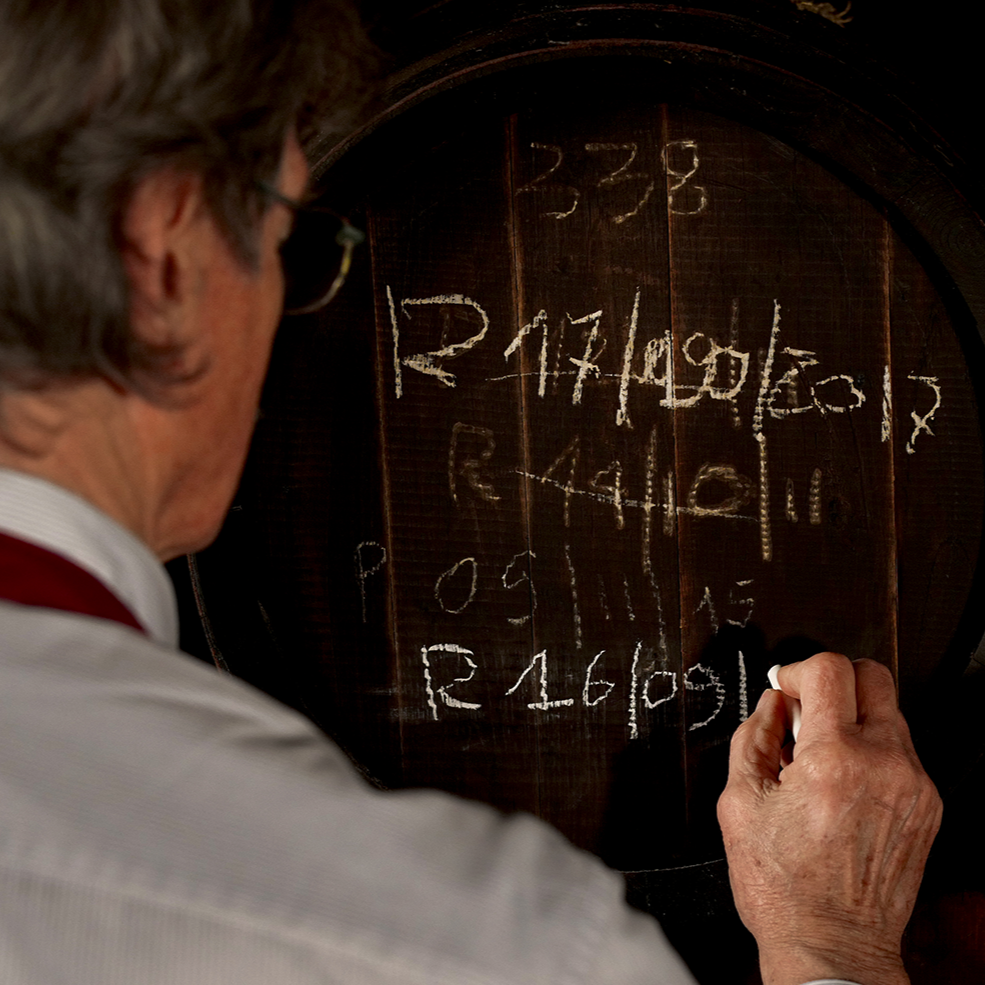 338
R 17/09/2012
R 14/10/11
P 09/11/15
R 16/09/